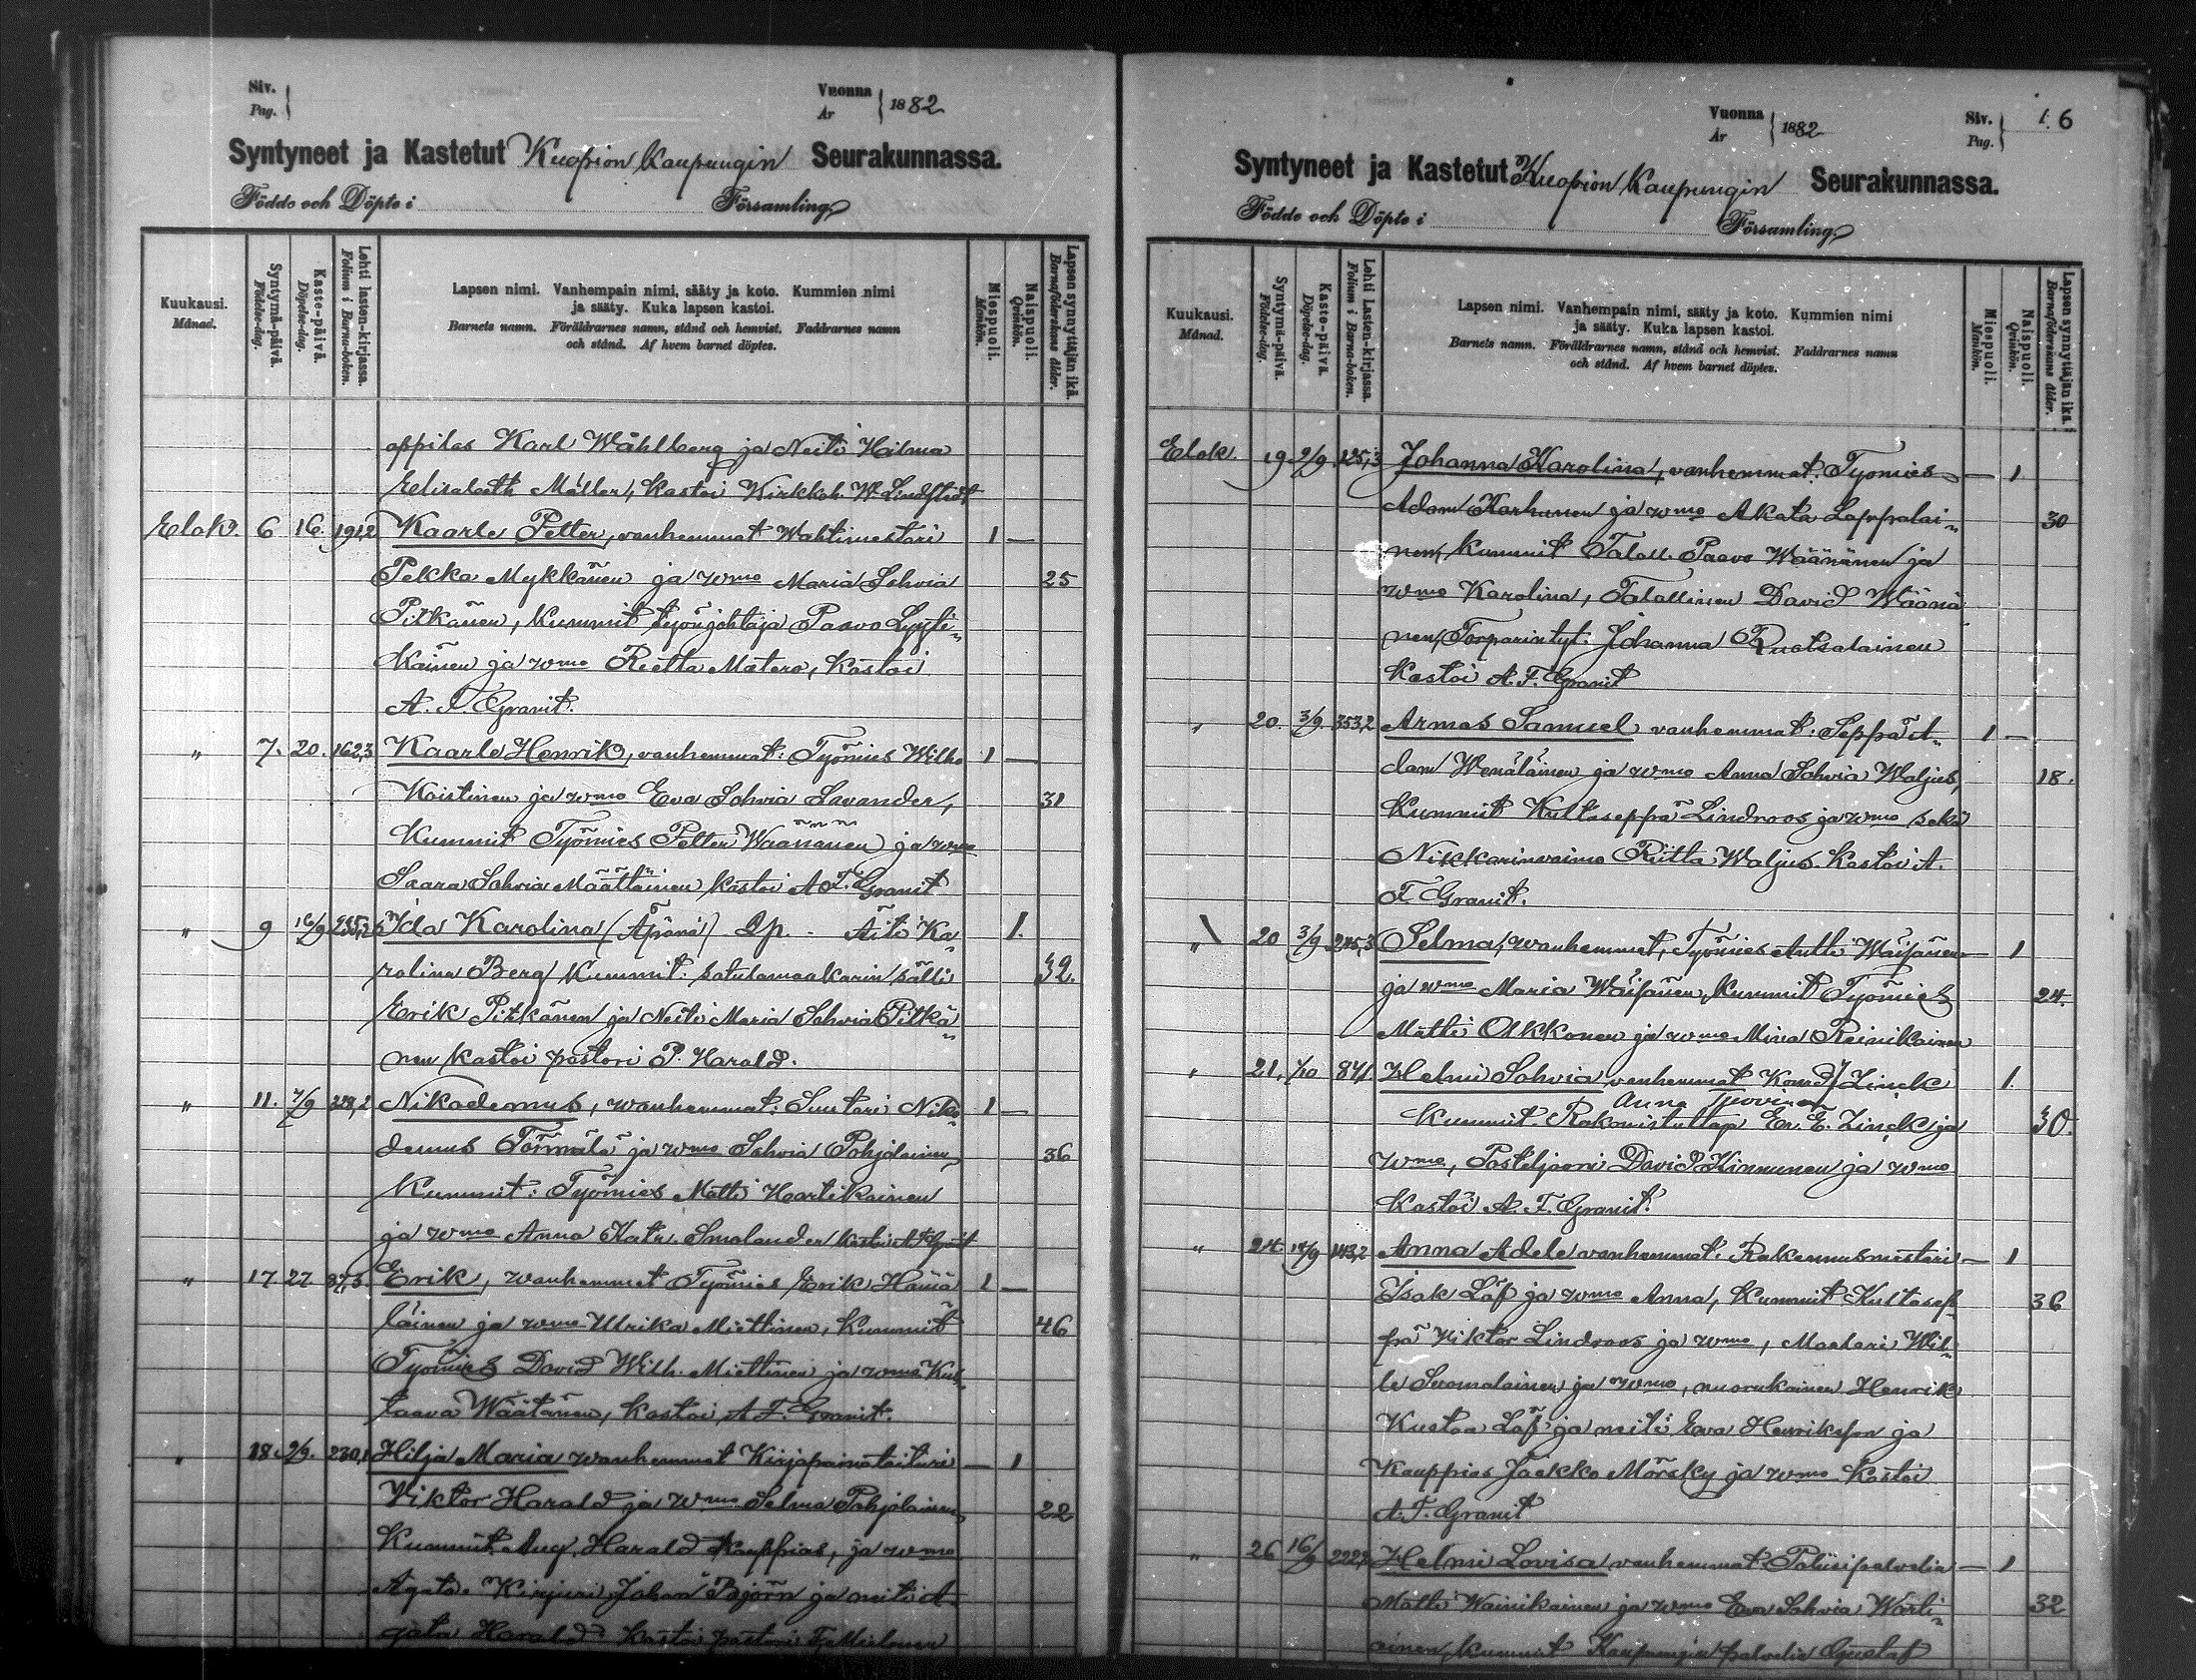 Siv.
Pag.
Vuonna
År
1882
Syntyneet ja Kastetut Kuopion Kaupungin Seurakunnassa.
Födde och Döpte i Församling
Kuukausi.
Månad.
Syntymä-päivä.
Födelse-dag.
Kaste-päivä.
Döpelse-dag.
Lehti lasten-kirjassa.
Folium i Barna-boken.
Lapsen nimi. Vanhempain nimi, sääty ja koto. Kummien nimi
ja sääty. Kuka lapsen kastoi.
Barnets namn. Föräldrarnes namn, stånd och hemvist. Faddrarnes namn
och stånd. Af hvem barnet döptes.
Miespuoli.
Mankön.
Naispuoli.
Qvinkön.
Lapsen synnyttäjän ikä.
Barnaföderskans ålder.
oppilas Karl Wåhlberg ja Neiti Hilma
Elisabeth Möller, Kastoi Kirkkoh. W. Lindstedt
Elok. 6 16. 191,2 Kaarle Petter, vanhemmat Wahtimestari 1 —
Pekka Mykkänen ja wmo Maria Sohvia 25
Pitkänen, Kummit työnjohtaja Paavo Lyyti„
käinen ja wmo Reetta Matero, Kastoi
A. F. Granit.
„ 7. 20. 162,3 Kaarle Henrik, vanhemmat: Työmies Wilho 1 —
Koistinen ja wmo Eva Sohvia Savander, 31
Kummit Työmies Petter Wäänänen ja wmo
Saara Sohvia Määttäinen kastoi A F. Granit
„ 9 16/9 235,2 Ida Karolina (Äpärä) Qp. - Äiti Ka„ 1.
rolina Berg Kummit: satulamaakarin sälli 32.
Erik Pitkänen ja Neiti Maria Sohvia Pitkä„
nen kastoi pastori P. Harald.
„ 11. 7/9 238,2 Nikodemus, vanhemmat: Suutari Niko„ 1 —
demus Törmälä ja wmo Sohvia Pohjolainen, 36
Kummit: Työmies Matti Hartikainen
ja wmo Anna Katr. Smolander kastoi A F Granit
„ 17 27 87,3. Erik, vanhemmat Työmies Erik Hämä 1 —
läinen ja wmo Ulrika Miettinen, Kummit 46
Työmies David Wilh. Miettinen ja wmo Kus„
taava Wäätänen, Kastoi A. F. Granit.
„ 18. 2/9. 230,1 Hilja Maria vanhemmat Kirjapainotaituri — 1
Viktor Harald ja wmo Selma Pohjolainen, 22
Kummit Aug. Harald Kauppias, ja wmo
Agata. Kirjuri Johan Björn ja neiti A„
gata Harald kastoi pastori
Vuonna
År
1882
Siv.
Pag.
1.6
Syntyneet ja Kastetut Kuopion Kaupungin Seurakunnassa.
Födde och Döpte i Församling
Kuukausi.
Månad.
Syntymä-päivä.
Födelse-dag.
Kaste-päivä.
Döpelse-dag.
Lehti Lasten-kirjassa.
Folium i Barna-boken.
Lapsen nimi. Vanhempain nimi, sääty ja koto. Kummien nimi
ja sääty. Kuka lapsen kastoi.
Barnets namn. Föräldrarnes namn, stånd och hemvist. Faddrarnes namn
och stånd. Af hvem barnet döptes.
Miespuoli.
Mankön.
Naispuoli.
Qvinkön.
Lapsen synnyttäjän ikä.
Barnaföderskans ålder.
Elok. 19. 2/9. 125,3 Johanna Karolina, vanhemmat: Työmies — 1
Adam Karhunen ja wmo Akata Lappalai„ 30
nen, Kummit Talall. Paavo Wäänänen ja
wmo Karolina, Talallinen David Wäänä
nen, Torparintyt. Johanna Ruotsalainen
Kastoi A. F. Granit
„ 20. 3/9. 353,2 Armas Samuel vanhemmat: Seppä A„ 1 —
dam Wenäläinen ja wmo Anna Sohvia Waljus, 18.
Kummit Kultaseppä Lindroos ja wmo sekä
Nikkarinvaimo Riitta Waljus Kastoi A.
F. Granit.
„ 20 3/9. 225,3 Selma, vanhemmat, Työmies Antti Wäisänen — 1
ja wmo Maria Wäisänen, Kummit Työmies 24.
Matti Olkkonen ja wmo Mina Reinikainen
„ 21, 1/10 87,1 Helmi Sohvia vanhemmat Konrad Zinck 1.
Anna
Kummit. Rakonistuttap Er. E. Zinck ja 30.
wmo, Posteljooni David Kinnunen ja wmo
Kastoi A. F. Granit.
„ 24 143,2 Anna Adele vanhemmat: Rakennusmestari — 1
Isak Löf ja wmo Anna, Kummit Kultasep„ 36
pä Viktor Lindroos ja wmo, Maalari Wil„
le Suomalainen ja wmo, nuorukainen Henrik
Kustaa Löf ja neiti Eva Henrikson ja
Kauppias Jaakko Mörsky ja wmo Kastoi
A. F. Granit
„ 26 16/9 222,2 Helmi Lovisa, vanhemmat Poliisipalvelia — 1
Matti Wainikainen ja wmo Eva Sohvia Warti„ 32
ainen, kummit Kaupungin palvelia Gustaf